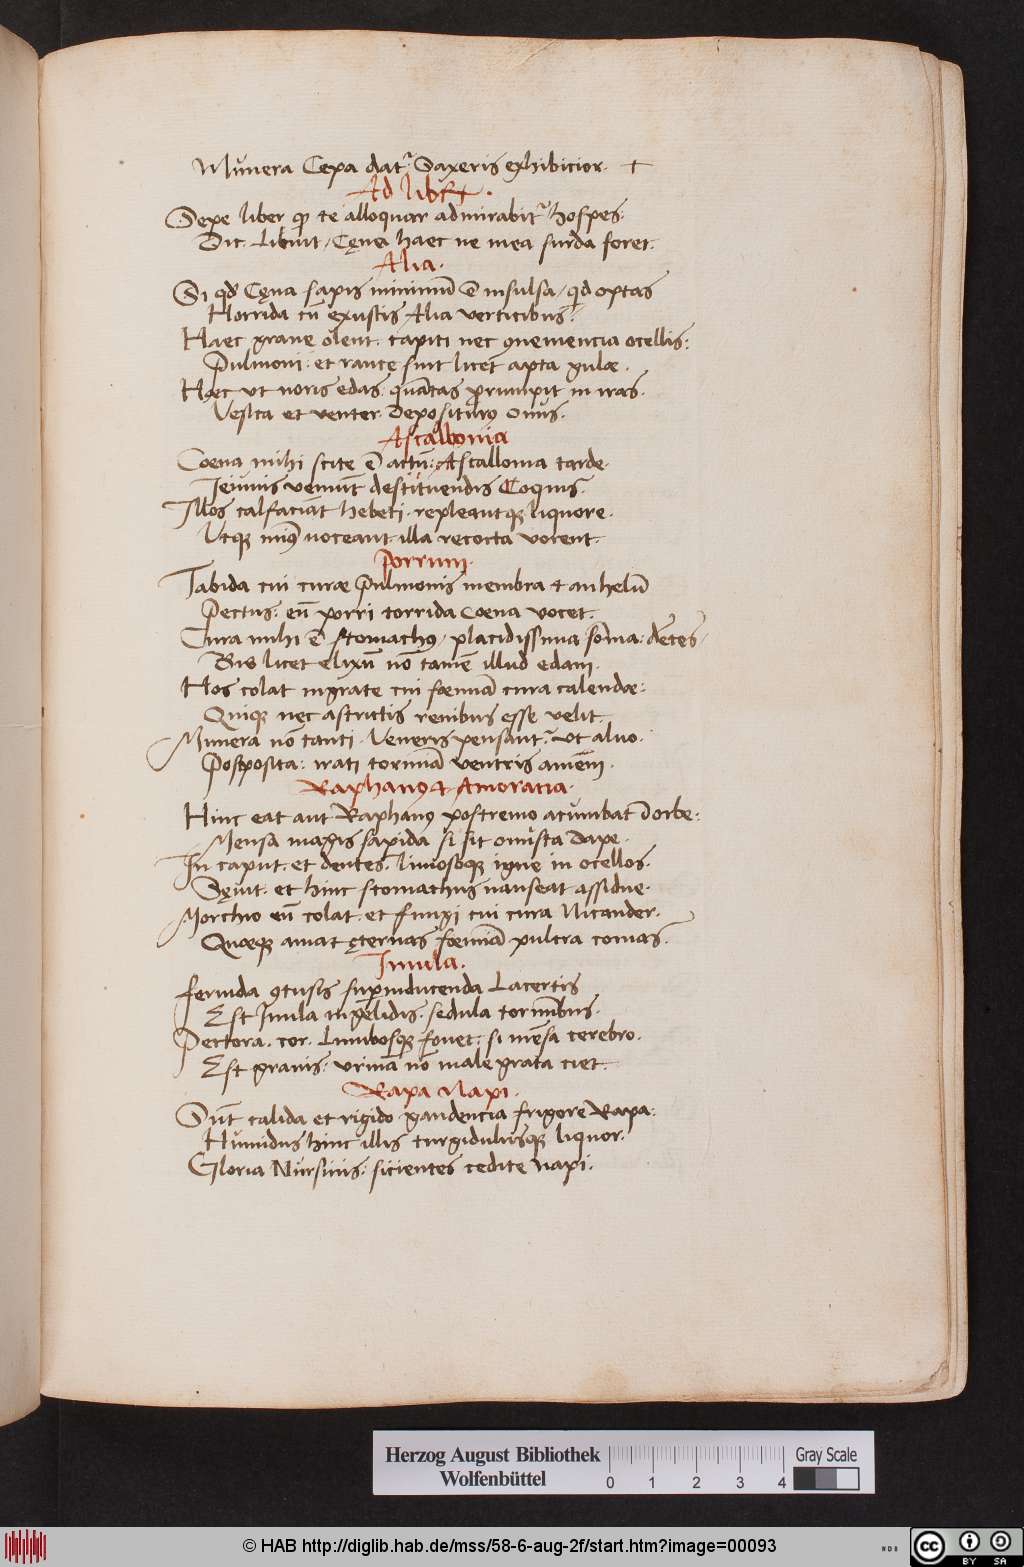 Munera Cepa dat᷑. Saxeris exhibitior. +
Ad libꝝ.
Sepe liber ꝙ te alloquar admirabit᷑ hospes.
Dic Libuit / Cęna haec ne mea surda foret.
Alia.
Si qd Cęna sapis minimū ē insulsa / qd optas
Horrida cū exustis Alia verticibus.
Haec grave olent. capiti nec ꝯvenientia ocellis:
Pulmoni. et raucę sint licet apta gulae.
Haec ut noris edas. quātas prorumpit in iras.
Vesica et venter deposituꝰ onus.
Ascallonia
Coena mihi scite ē actū: Ascallonia tarde.
Ieiunis veniūt destituendis Coquis.
Illos calfaciāt hebeti. repleantqꝫ liquore.
Utqꝫ minꝰ noceant. illa recocta vocent.
Porrum.
Tabida cui curae Pulmonis membra & anhelū
Pectus: eū porri torrida Coena vocet.
Cura mihi ē stomachꝰ / placidissima somnia: dētes /
Bis licet elixū nō tamē illud edam.
Hos colat ingrate cui foeminā cura calendae:
Quiqꝫ nec astrictis renibus esse velit.
Munera nō tanti. Veneris pensant᷑. ut alvo.
Postposita: irati torminā ventris amēm.
Raphanꝰ & Amoracia.
Hinc eat aut Raphanꝰ postremo accumbat ī orbe:
Mensa magis sapida si sit omista dape.
In caput. et dentes. limosqꝫ igne in ocellos.
Sęvit. et hinc stomachus nauseat assidue.
Morchio eū colat. et fungi cui cura Nicander.
Quaeqꝫ amat ęternas foeminā pulcra comas.
Inula.
Fervida ꝯtusis superinducenda Lacertis
Est Inula in gelidis. sedula torminibus.
Pectora. cor. Lumbosqꝫ fovet. si mēsa cerebro.
Est gravis. urinā nō male grata ciet.
Rapa Napi.
Sūt calida et rigido gaudencia frigore Rapa:
Humidus hinc illis turgidulusqꝫ liquor.
Gloria Nursinis. sitientes cedite Napi.
Herzog August Bibliothek
Wolfenbüttel
0 1 2 3 4
Gray Scale
© HAB http://diglib.hab.de/mss/58-6-aug-2f/start.htm?image=00093
WDB
cc BY SA